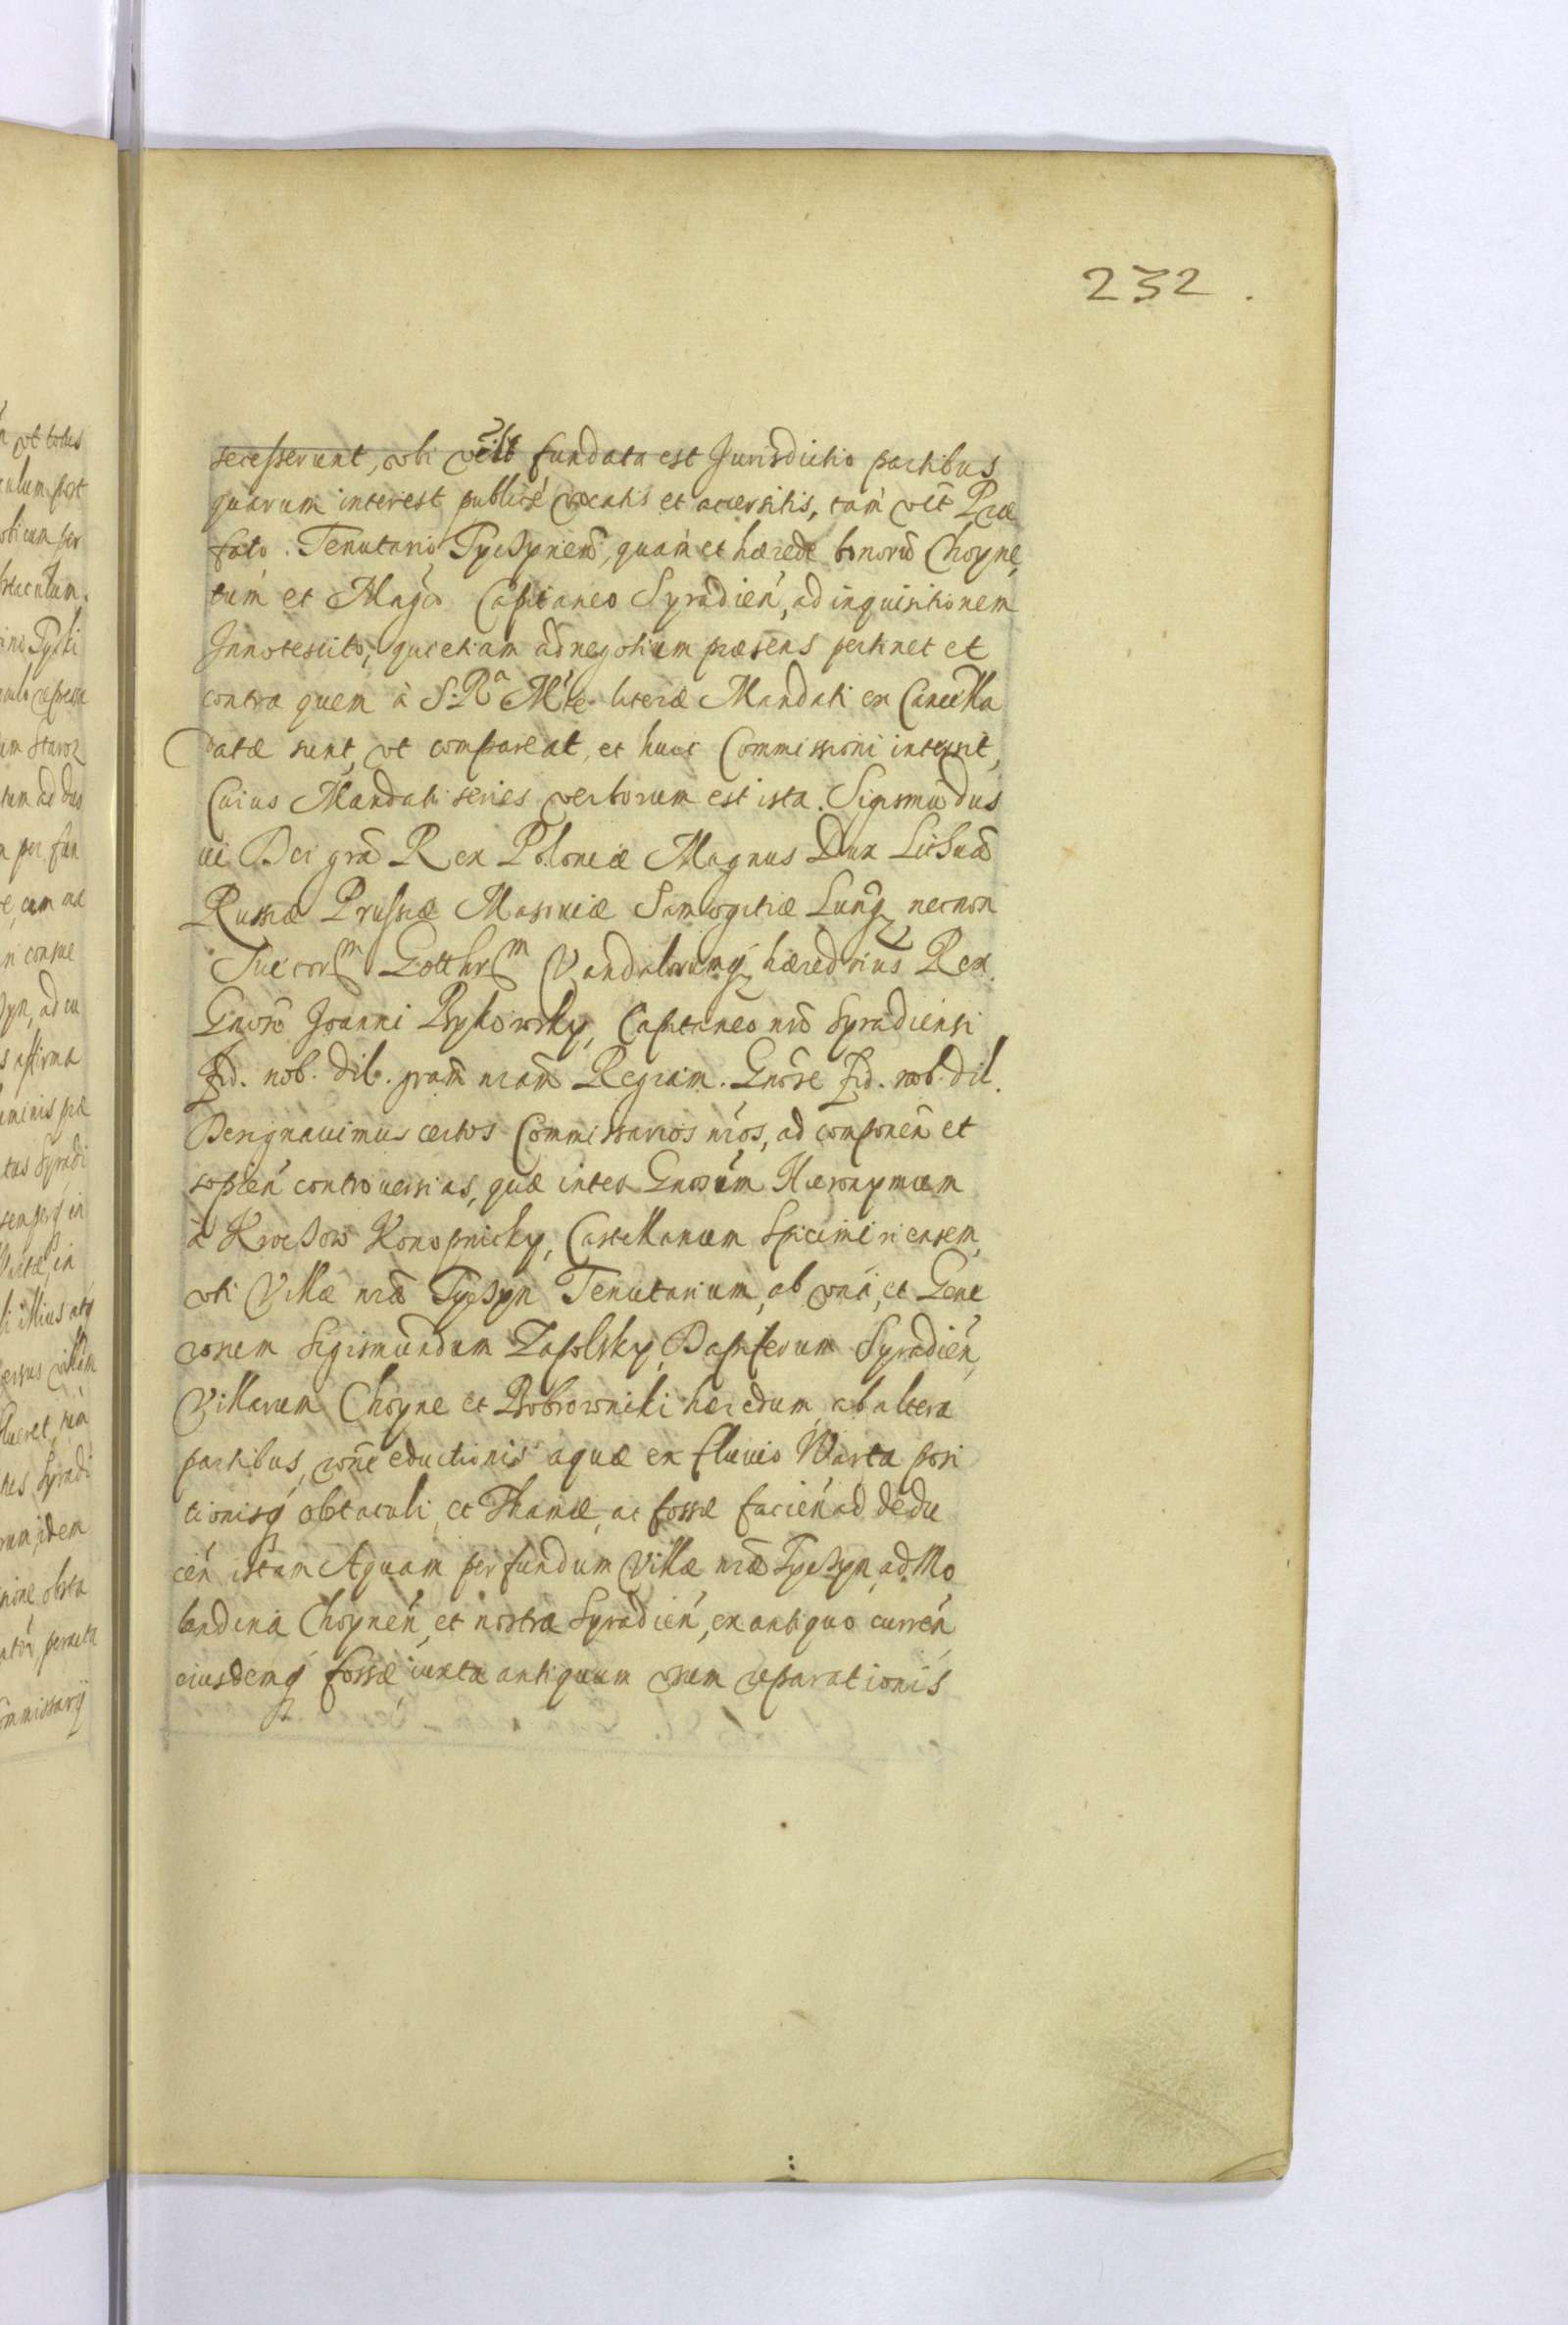 232.
secesserunt, vbi fundata est Jurisdictio partibus
quarum interest publicé vocatis et accersitis, tàm vct Præ
fato Tenutario Tyczynen, quàm et hærede bonorũ Choyne,
tùm et Mag̃co Capitaneo Syradień, ad inquisitionem
Innotescito, qui etiam ad negotium præsens pertinet et
contra quem à S. Rª Mte literæ Mandati ex Cancella
datæ sunt, vt compareat, et huic Commissioni intersit,
Cuius Mandati series verborum est ista. Sigismũdus
iii Dei grã Rex Poloniæ Magnus Dux Lithuã
Russiæ Prussiæ Masouiæ Samogitiæ Liuoñq necnon
Suecorm Gotthrm Vandalorumq́ hæredrius Rex.
Gnoso Joanni Bykowsky, Capitaneo nrõ Syradiensi
fid. nob. dil. gram nram Regiam. Gnõse fid. nob. dil.
Designauimus certos Commissarios nr̃os, ad componeñ et
sopień controuersias, quæ inter Gnosum Hieronymum
à Kroczow Konopnicky, Castellanum Spicimiriensem,
vti Villæ nræ Tyczyn Tenutarium, ab vna, et Gene
rosum Sigismundum Zapolsky, Dapiferum Syradień,
Villarum Choyne et Bobrowniki hæredum, ab altera
partibus, rõne eductionis aquæ ex fluuio Warta posi
tionisq́ obstaculi, et Thamæ, ac fossæ facień ad dedu
ceń istam Aquam per fundum Villæ nræ Tyczyn, ad Mo
lendina Choyneń, et nostra Syradień, ex antiquo curreń
eiusdemq́ fossæ iuxta antiquum vsum reparationis